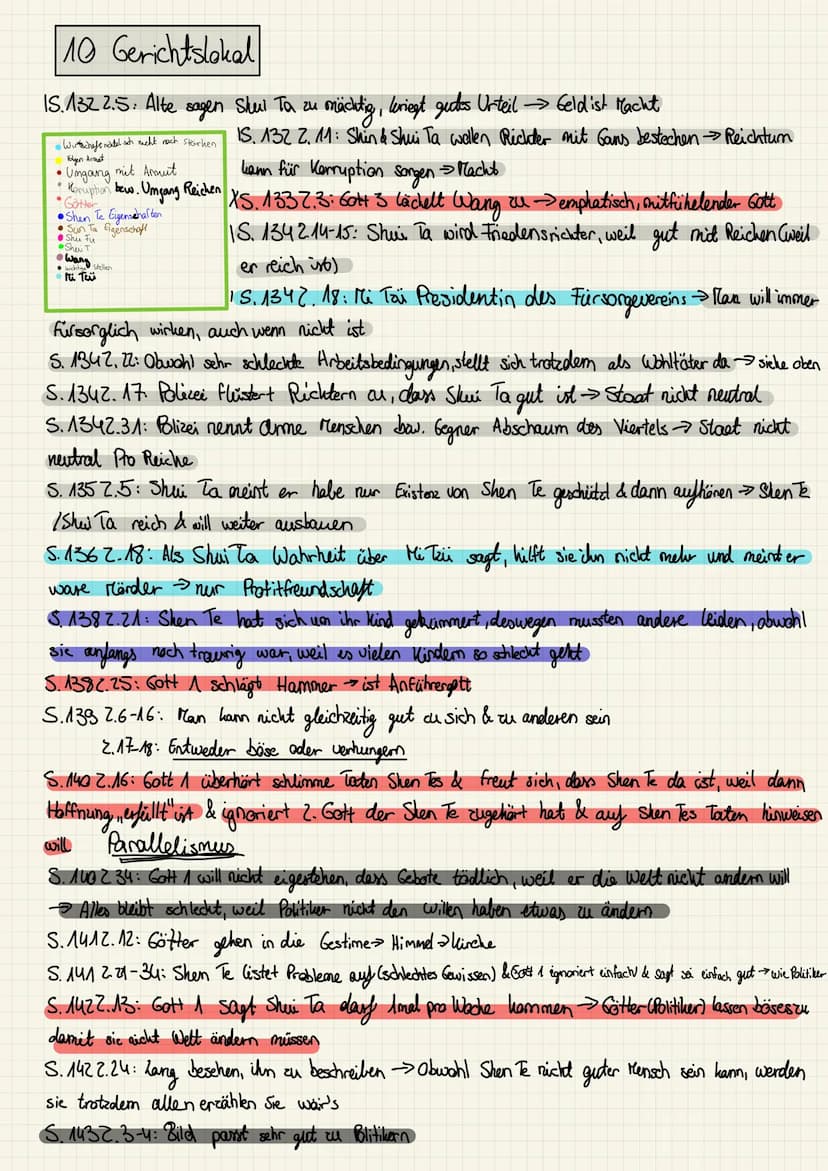 10 Gerichtslokal
S.132 Z.5: Alte sagen Shui Ta zu mächtig, kriegt gutes Urteil → Geld ist Macht
S. 132 Z. 11: Shin & Shui Ta wollen Richter mit Gans bestechen → Reichtum
kann für Korruption sorgen → Macht
S. 133 Z.3: Gott 3 lächelt Wang zu → emphatisch, mitfühlender Gott
S. 134 Z.14-15: Shui Ta wird Friedensrichter, weil gut mit Reichen (weil
er reich ist)
S. 134 Z. 18: Mi Tzü Presidentin des Fürsorgevereins → Man will immer
fürsorglich wirken, auch wenn nicht ist
Umgang mit Armut
Korruption bzw. Umgang Reichen
Götter
Shen Te Eigenschaften
Sun Ta Eigenschaft
Shu Fu
Shui T
Wang
wichtige Stellen
Mi Tzü
S. 134 Z. 22: Obwohl sehr schlechte Arbeitsbedingungen, stellt sich trotzdem als Wohltäter da → siehe oben
S. 134 Z. 17 Polizei flüstert Richtern zu, dass Shui Ta gut ist → Staat nicht neutral
S. 134 Z.31: Plizei nennt arme Menschen bzw. Gegner Abschaum des Viertels → Staat nicht
neutral Pro Reiche
S. 135 Z.5: Shui Ta meint er habe nur Existenz von Shen Te geschützt & dann aufhören → Shen Te
/Shui Ta reich & will weiter ausbauen
S. 136 Z.18: Als Shui Ta Wahrheit über Mi Tzü sagt, hilft sie ihn nicht mehr und meint er
wäre Mörder → nur Profitfreundschaft
S. 138 Z.21: Shen Te hat sich um ihr Kind gekümmert, deswegen mussten andere leiden, obwohl
sie anfangs noch traurig war, weil es vielen Kindern so schlecht geht
S. 138 Z.25: Gott 1 schlägt Hammer → ist Anführergott
S. 139 Z.6-16: Man kann nicht gleichzeitig gut zu sich & zu anderen sein
Z.17-18: Entweder böse oder verhungern
S. 140 Z.16: Gott 1 überhört schlimme Taten Shen Tes & freut sich, dass Shen Te da ist, weil dann
Hoffnung „erfüllt" ist & ignoriert 2. Gott der Shen Te zugehört hat & auf Shen Tes Taten hinweisen
will Parallelismus
S. 140 Z 34: Gott 1 will nicht eigestehen, dass Gebote tödlich, weil er die Welt nicht ändern will
→ Alles bleibt schlecht, weil Politiker nicht den willen haben etwas zu ändern
S. 141 Z. 12: Götter gehen in die Gestirne → Himmel → Kirche
S. 141 Z 21-34: Shen Te listet Probleme auf (schlechtes Gewissen) & Gott 1 ignoriert einfach & sagt sei einfach gut → wie Politiker
S. 142 Z.13: Gott 1 sagt Shui Ta darf 1mal pro Woche kommen → Götter (Politiker) lassen böses zu
damit sie nicht Welt ändern müssen
S. 142 Z.24: Lang besehen, ihn zu beschreiben → Obwohl Shen Te nicht guter Mensch sein kann, werden
sie trotzdem allen erzählen Sie wär's
S. 143 Z.3-4: Bild passt sehr gut zu Plitikern